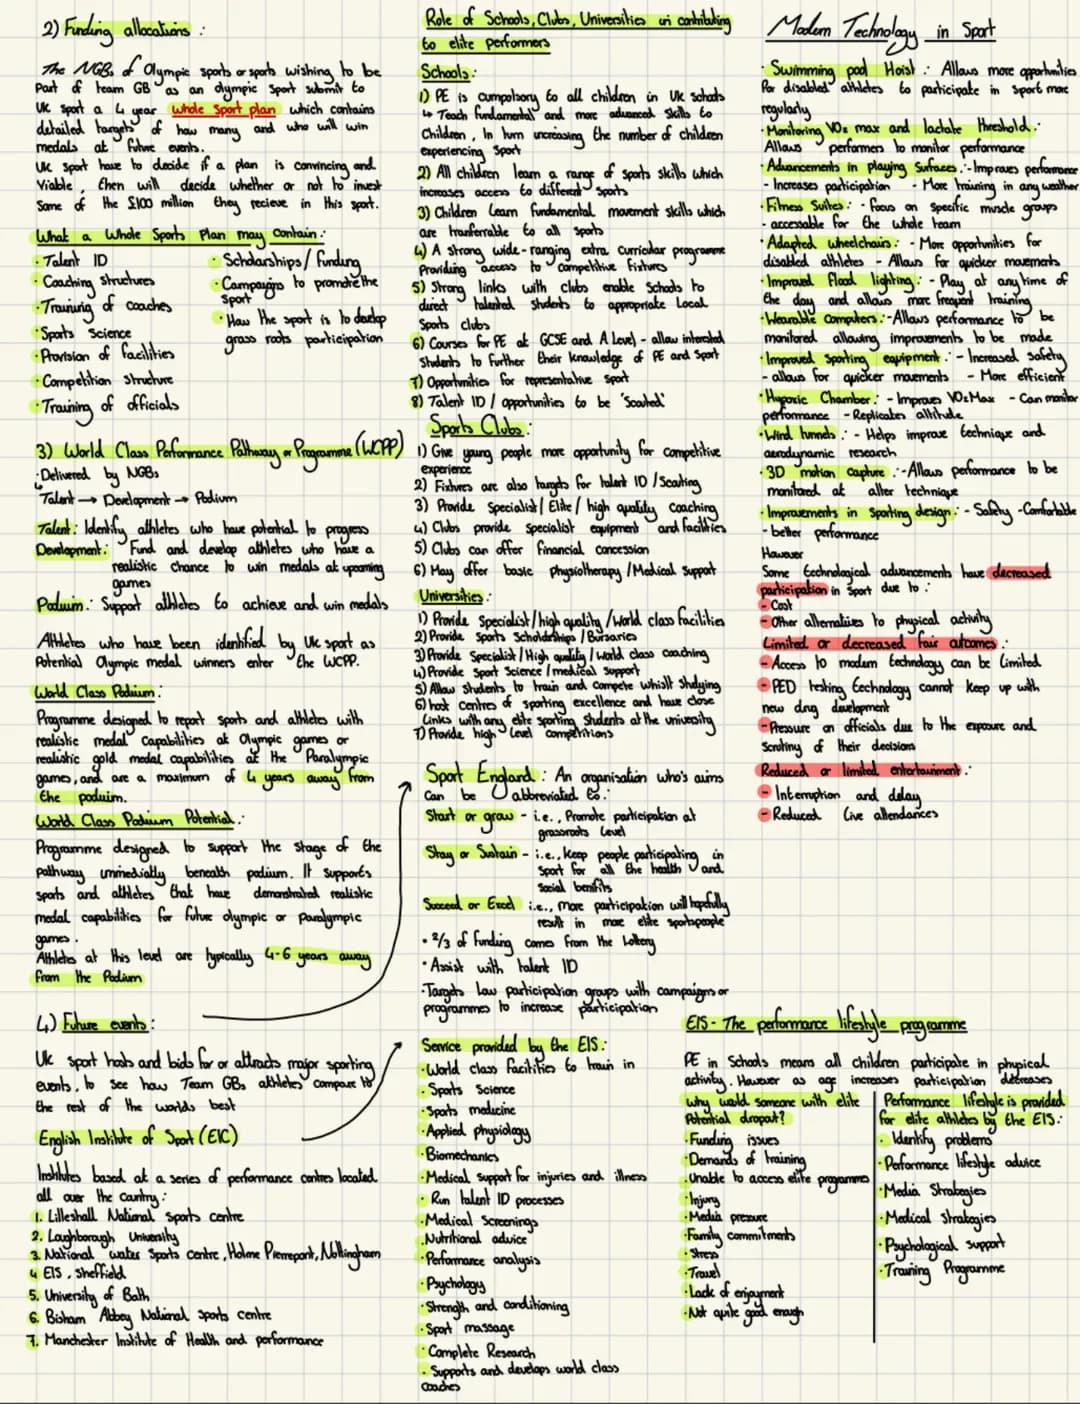 2) Funding allocations :
The NGBs of Olympic sports or sports wishing to be
Part of team GB as an olympic sport submit to
UK sport a 4 year whole sport plan which contains
detailed targets of how many and who will win
medals at future events.
UK sport have to decide if a plan is convincing and
viable, then will decide whether or not to invest
some of the £100 million they recieve in this sport.
What a Whole Sports Plan may Contain:
· Talent ID
· Coaching Structures
· Training of coaches
· Sports Science
· Provision of facilities
· Competition structure
· Training of officials
· Scholarships / funding
· Campaigns to promote the
sport
· How the sport is to develop
grass roots participation
3) World Class Performance Pathway or Programme (WCPP)
· Delivered by NGBs
Talent → Development → Podium
Talent: Identify athletes who have potential to progress
Development: Fund and develop athletes who have a
realistic chance to win medals at upcoming
games
Podium: Support athletes to achieve and win medals
Athletes who have been identified by UK sport as
Potential Olympic medal winners enter the WCPP.
World Class Podium:
Programme designed to report sports and athletes with
realistic medal capabilities at Olympic games or
realistic gold medal capabilities at the Paralympic
games, and are a maximum of 4 years away from
the podium.
World Class Podium Potential:
Programme designed to support the stage of the
pathway immediatly beneath podium. It supports
sports and athletes that have demonstrated realistic
medal capabilities for future olympic or paralympic
games.
Athletes at this level are typically 4-6 years away
from the Podium
4) Future events:
UK sport hosts and bids for or attracts major sporting
events, to see how Team GBs athletes compare to
the rest of the worlds best
English Institute of Sport (EIC)
Institutes based at a series of performance centres located
all over the country:
1. Lilleshall National Sports centre
2. Loughborough University
3. National water Sports centre, Holme Pierrepont, Nottingham
4. EIS, Sheffield
5. University of Bath
6. Bisham Abbey National sports centre
7. Manchester Institute of Health and performance
Role of Schools, Clubs, Universities in contributing
to elite performers
Schools:
1) PE is cumpolsory to all children in UK schools
↳ Teach fundamental and more advanced skills to
Children, In turn increasing the number of children
experiencing Sport
2) All children learn a range of sports skills which
increases access to different sports
3) Children learn fundamental movement skills which
are tranferrable to all sports
4) A strong wide-ranging extra curricular programme
Providing access to competitive fixtures
5) Strong links with clubs enable Schools to
direct talented students to appropriate Local
Sports clubs
6) Courses for PE at GCSE and A Level - allow interested
Students to further their knowledge of PE and Sport
7) Opportunities for representative sport
8) Talent ID / opportunities to be 'Scouted'
Sports Clubs:
1) Give young people more opportunity for competitive
experience
2) Fixtures are also targets for talent ID / Scouting
3) Provide Specialist / Elite / high quality Coaching
4) Clubs provide specialist equipment and facilities
5) Clubs can offer financial concession
6) May offer basic physiotherapy / Medical support
Universities:
1) Provide Specialist / high quality / World class facilities
2) Provide Sports Scholarships / Bursaries
3) Provide Specialist / High quality / world class coaching
4) Provide Sport Science / medical support
5) Allow students to train and compete whilst studying
6) host centres of sporting excellence and have close
Links with any elite sporting students at the university
7) Provide high level competitions
Sport England: An organisation who's aims
Can be abbreviated to:
Start or grow - i.e., Promote participation at
grassroots level
Stay or Sustain - i.e., keep people participating in
sport for all the health and
social benifits
Succeed or Excel i.e., more participation will hopefully
result in more elite sportspeople
· 2/3 of funding comes from the Lottery
· Assist with talent ID
· Targets Low participation groups with campaigns or
programmes to increase participation
Service provided by the EIS:
· World class facilities to train in
· Sports Science
· Sports medicine
· Applied physiology
· Biomechanics
· Medical support for injuries and illness
· Run talent ID processes
· Medical Screenings
· Nutritional advice
· Performance analysis
· Psychology
· Strength and conditioning
· Sport massage
· Complete Research
· Supports and develops world class
coaches
Modern Technology in Sport
· Swimming pool Hoist: Allows more opportunities
for disabled athletes to participate in sport more
regularly
· Monitoring VO2 max and lactate threshold:
Allows performers to monitor performance
· Advancements in playing Surfaces: - Improves performance
- Increases participation - More training in any weather
· Fitness Suites: - focus on specific muscle groups
- accessable for the whole team
· Adapted wheelchairs: - More opportunities for
disabled athletes - Allows for quicker movements
· Improved Flood lighting: - Play at any time of
the day and allows more frequent training
· Wearable computers: - Allows performance to be
monitored allowing improvements to be made
· Improved sporting equipment: - Increased safety
- allows for quicker movements - More efficient
· Hypoxic Chamber: - Improves VO2 Max - Can monitor
performance - Replicates altitude
· Wind tunnels: - Helps improve technique and
aerodynamic research
· 3D motion capture: - Allows performance to be
monitored at alter technique
· Improvements in sporting design: - Safety - Comfortable
- better performance
However
Some technological advancements have decreased
participation in sport due to:
- Cost
- Other alternatives to physical activity
Limited or decreased fair outcomes:
- Access to modern technology can be limited
- PED testing technology cannot keep up with
new drug development
- Pressure on officials due to the exposure and
Scrutiny of their decisions
Reduced or limited entertainment:
- Interruption and delay
- Reduced Live attendances
EIS - The performance lifestyle programme
PE in Schools means all children participate in physical
activity. However as age increases participation decreases
why would someone with elite
Potential dropout?
· Funding issues
· Demands of training
· Unable to access elite programmes
· Injury
· Media pressure
· Family commitments
· Stress
· Travel
· Lack of enjoyment
· Not quite good enough
Performance lifestyle is provided
for elite athletes by the EIS:
· Identify problems
· Performance lifestyle advice
· Media Strategies
· Medical strategies
· Psychological support
· Training Programme